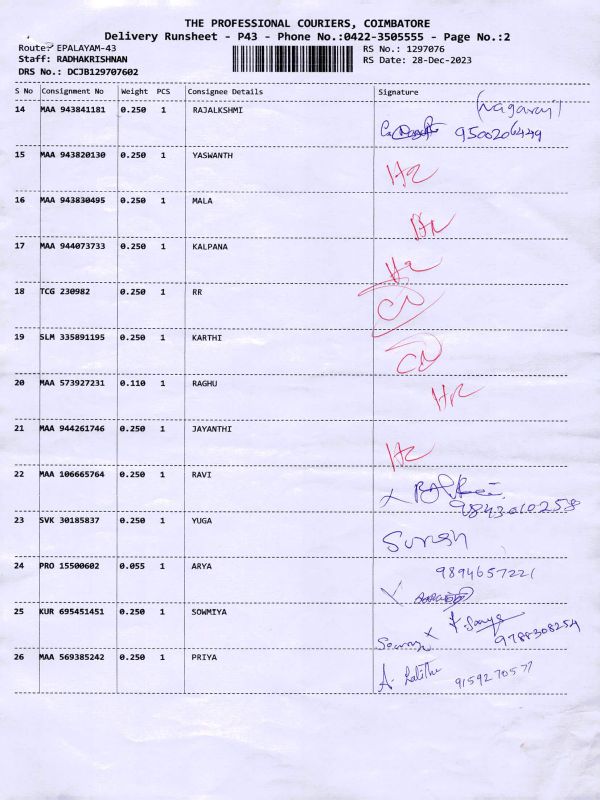 THE PROFESSIONAL COURIERS, COIMBATORE
Delivery Runsheet - P43 - Phone No.:0422-3505555 - Page No.:2
Route: EPALAYAM-43 RS No.: 1297076
Staff: RADHAKRISHNAN RS Date: 28-Dec-2023
DRS No.: DCJB129707602
S No Consignment No Weight PCS Consignee Details Signature
14 MAA 943841181 0.250 1 RAJALKSHMI (Nagaraj)
9500206449
15 MAA 943820130 0.250 1 YASWANTH
16 MAA 943830495 0.250 1 MALA
17 MAA 944073733 0.250 1 KALPANA
18 TCG 230982 0.250 1 RR
19 SLM 335891195 0.250 1 KARTHI
20 MAA 573927231 0.110 1 RAGHU
21 MAA 944261746 0.250 1 JAYANTHI
22 MAA 106665764 0.250 1 RAVI
9843010258
23 SVK 30185837 0.250 1 YUGA
Suresh
24 PRO 15500602 0.055 1 ARYA 9894657221
25 KUR 695451451 0.250 1 SOWMIYA
9788308254
26 MAA 569385242 0.250 1 PRIYA
A. Lalitha 9159270577